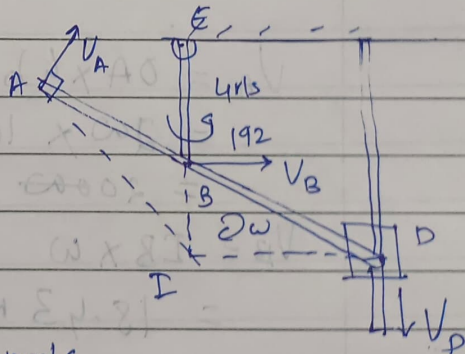 E
V_A
A
4r/s
192
V_B
B
ω
D
I
V_D